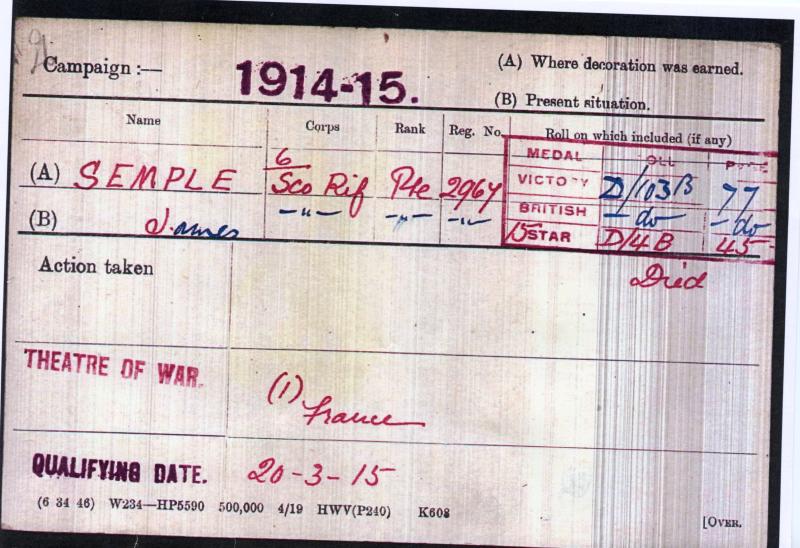 Campaign :— 1914-15. (A) Where decoration was earned.
(B) Present situation.
Name Corps Rank Reg. No. Roll on which included (if any)
MEDAL ROLL PAGE
(A) SEMPLE 6 Sco Rif Pte 2967 VICTORY D/103B 77
(B) James —"— —"— —"— BRITISH —do— —do
15 STAR D/4B 45
Action taken Died
THEATRE OF WAR. (1) France
QUALIFYING DATE. 20-3-15
(6 34 46) W234—HP5590 500,000 4/19 HWV(P240) K608
[OVER.